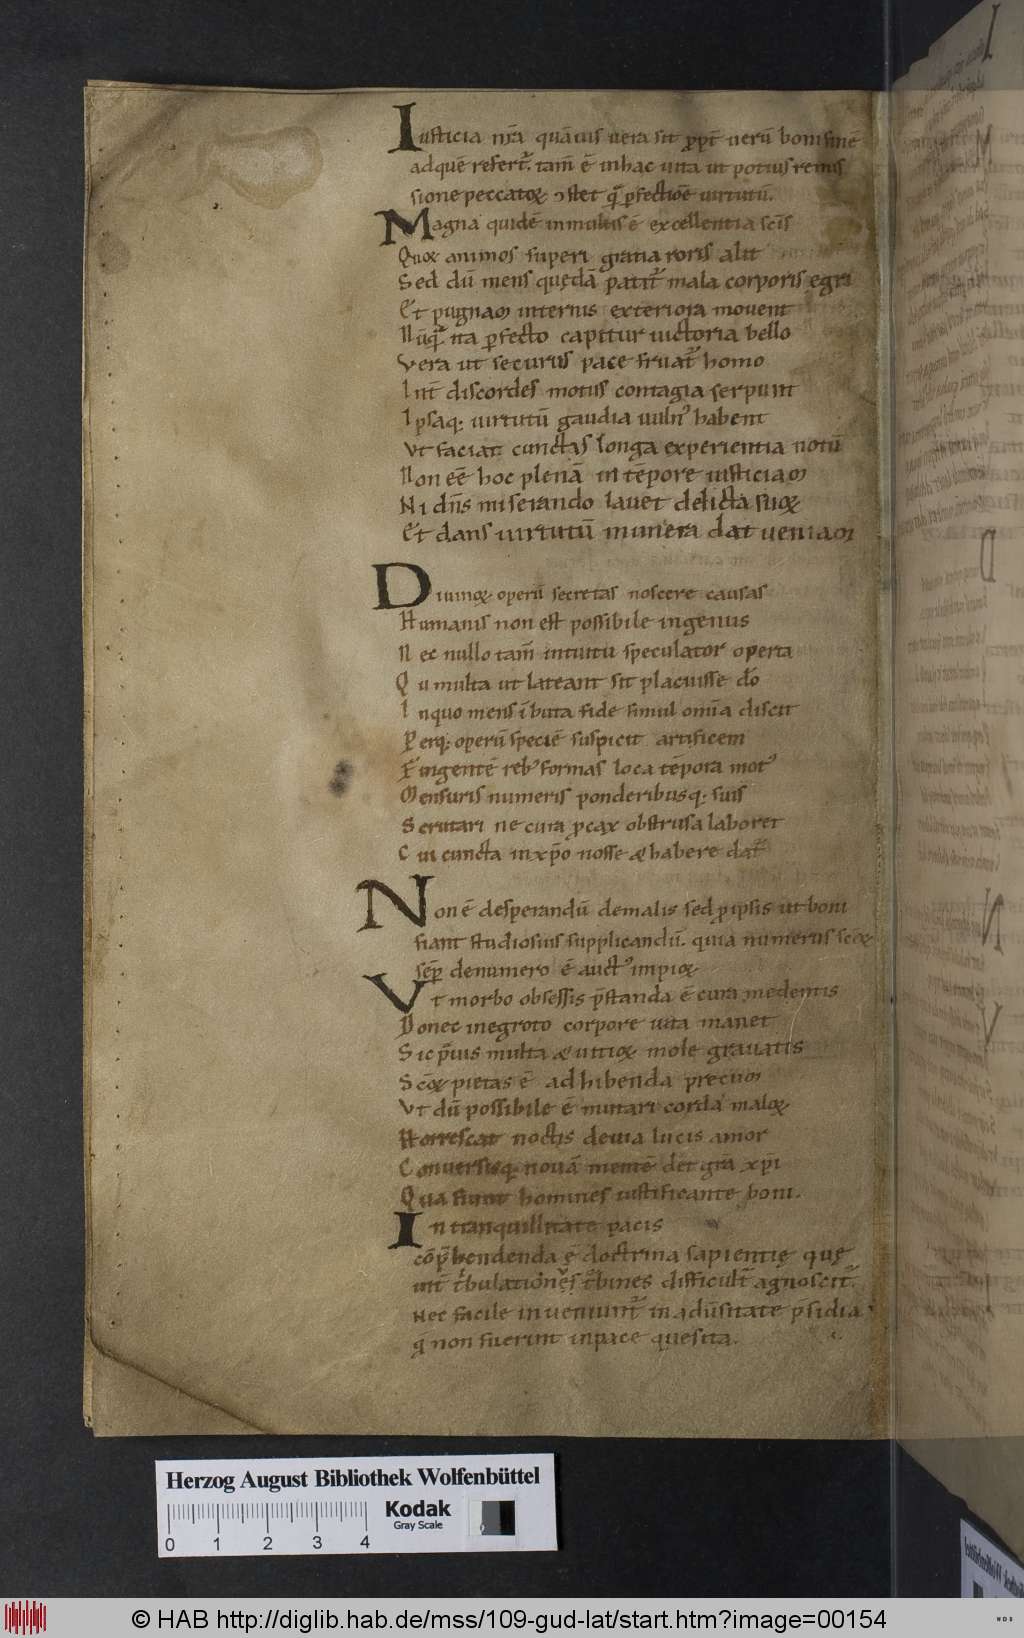 Iusticia nr̄a quāuis uera sit ꝓpt̄ uerū boni finē
adquē refert᷑. tam̄ ē inhac uita ut potius remis
sione peccatoꝝ ↄstet qͣ̄ ꝑfectiōe uirtutū.
Magna quidē inmultis ē excellentia sc̄is
Quoꝝ animos superi gratia roris alit
Sed dū mens quędā patit᷑ mala corporis egri
Et pugnam internis exteriora mouent
Nūqͣ̄ ita ꝑfecto capitur uictoria bello
Vera ut securus pace fruat᷑ homo
Int̄ discordes motus contagia serpunt
Ipsaq; uirtutū gaudia uuln᷒ habent
Vt faciat cunctas longa experientia notū
Non eē hoc plenā in tēpore iusticiam
Ni dn̄s miserando lauet delicta suoꝝ
Et dans uirtutū munera dat ueniam
Diuinoꝝ operū secretas noscere causas
Humanis non est possibile ingenus
Nec nullo tam̄ intuitu speculator operta
Qu multa ut lateant sit placuisse dō
Inquo mens ībuta fide simul om̄ia discit
Perq; operū speciē suspicit artificem
Fingentē reb᷒ formas loca tēpora mot᷒
Mensuris numeris ponderibusq; suis
Scrutari ne cura ꝓcax obstrusa laboret
Cui cuncta inxp̄o nosse & habere dat᷑
Non ē desperandū demalis sed ꝓipsis ut boni
fiant studiosius supplicandū. quia numerus sc̄oꝝ
sēꝑ denumero ē auct᷒ impioꝝ
Vt morbo obsessis p̄standa ē cura medentis
Donec inegroto corpore uita manet
Sic p̄uis multa & uitioꝝ mole grauatis
Sc̄oꝝ pietas ē adhibenda precum
Vt dū possibile ē mutari corda maloꝝ
Horrescat noctis deuia lucis amor
Conuersisq; nouā mentē det gr̄a xp̄i
Qua fiunt homines iustificante boni.
In tranquillitate pacis
cōp̄hendenda ē doctrina sapientię quę
int̄ tⁱbulationes tͥbines difficult̄ agnoscit᷑.
Nec facile inueniunt᷑ in aduersitate p̄sidia
q̄ non fuerint inpace quesita.
Herzog August Bibliothek Wolfenbüttel
0 1 2 3 4
Kodak
Gray Scale
© HAB http://diglib.hab.de/mss/109-gud-lat/start.htm?image=00154
WDB